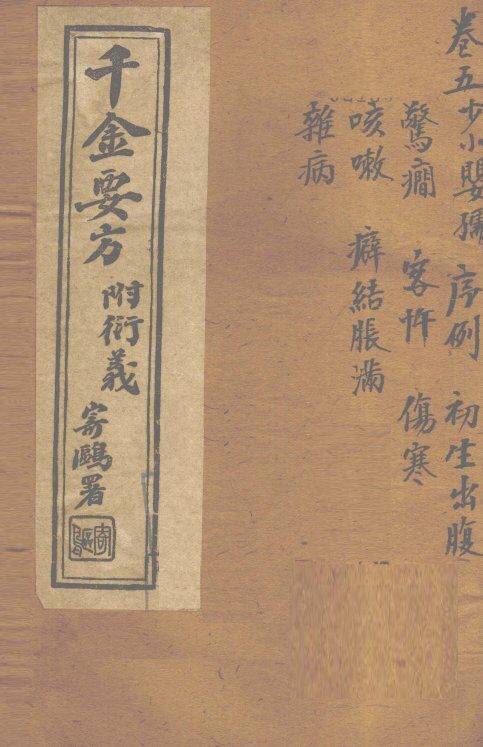 卷五少小嬰孺 序例 初生出腹
驚癇 客忤 傷寒
咳嗽 癖結脹滿
雜病
千金要方
附衍義
寄鷗署